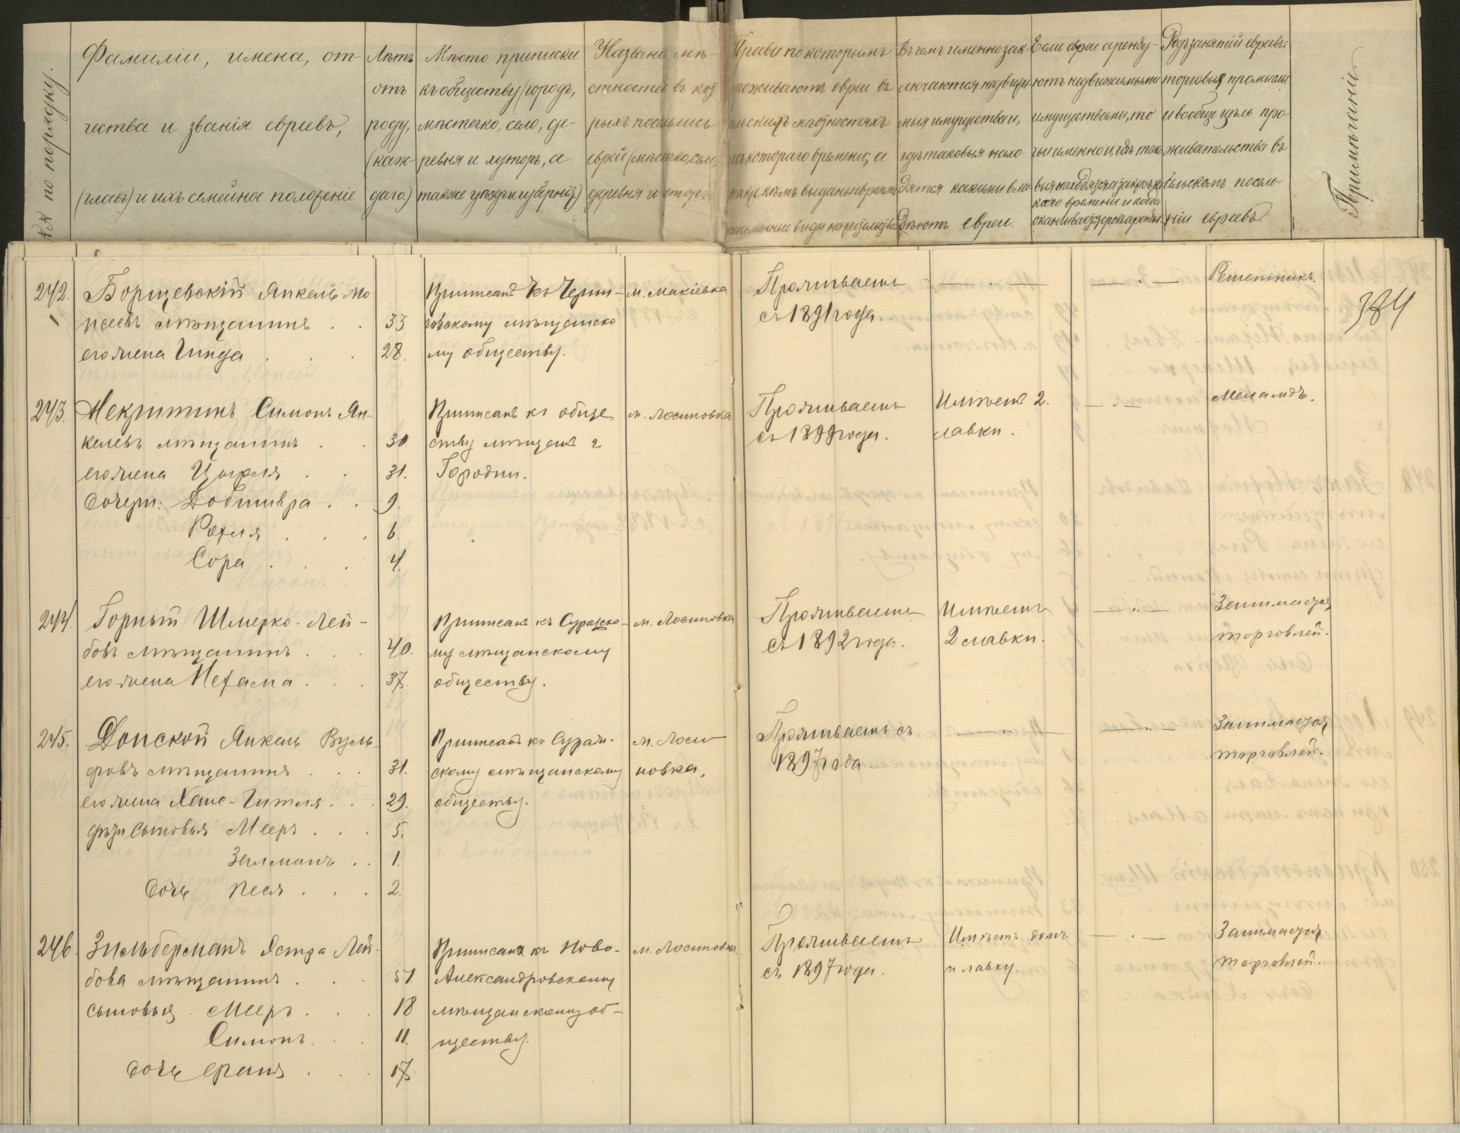 №№ по порядку.
Фамилии, имена, от-
чества и званія евреевъ,
(главъ) и ихъ семейное положеніе
Лѣтъ
отъ
роду,
(каж-
даго)
Мѣсто приписки
къ обществу (городъ,
мѣстечко, село, де-
ревня и хуторъ, а
также уѣздъ и губернія)
Названіе мѣ-
стностей въ ко
рыхъ поселились
евреи (мѣстечко, село,
деревня и хуторъ
Права по которымъ
проживаютъ евреи въ
сельскихъ мѣстностяхъ
съ котораго времени, а
Въ чемъ именно зак-
лючаются недвижи
мыя имущества и,
гдѣ таковыя нахо-
дятся какими вла-
дѣютъ евреи.
Если евреи аренду-
ютъ недвижимыми
имуществами, то
какого времени и когда
Родъ занятій евреевъ:
торговыя, промыслы
и вообще цѣль про-
живательства въ
сельскомъ поселе-
ніи евреевъ.
Примѣчаніе
384
242. Борщевскій Янкель Мо
вseевъ мѣщанинъ . . 33
его жена Гинда . . . 28.
Приписанъ къ Черни-
говскому мѣщанско
му обществу.
м. Макіевка
Проживаетъ
съ 1891 года.
— " —
— " —
Решетникъ.
243. Некритинъ Симонъ Ян-
келевъ мѣщанинъ . . 30.
его жена Цырля . . 31.
дочери: Добшивра . . 9.
Рохля . . . 6
Сора . . . 4.
Приписанъ къ обще
ству мѣщанъ г
Городни.
м. Лосиновка
Проживаетъ
съ 1899 года.
Имѣетъ 2.
лавки.
— " —
Меламдъ.
244. Горный Шмерко-Лей-
бовъ мѣщанинъ . . . 40.
его жена Нехама . . . 37.
Приписанъ къ Суражско-
му мѣщанскому
обществу.
м. Лосиновка
Проживаетъ
съ 1892 года.
Имѣетъ
2 лавки.
— " —
Занимается
торговлей.
245. Донской Янкель Вуль-
фовъ мѣщанинъ . . . 31.
его жена Хане-Гитля . . . 29.
дѣти сыновья Мееръ . . . 5.
Залманъ . . 1.
дочь Песя . . . 2
Приписанъ къ Сураж-
скому мѣщанскому
обществу.
м. Лоси-
новка.
Проживаетъ съ
1897 года
Занимается
торговлей.
246. Зильберманъ Эстра Лей-
бова мѣщанин . . . 51
сыновья Мееръ . . . 18
Симонъ . . . 11.
дочь Франия . . . 17.
Приписана къ Ново-
Александровскому
мѣщанскому об-
ществу.
м. Лосиновка
Проживаетъ
съ 1897 года.
Имѣетъ домъ
и лавку.
— " —
Занимается
торговлей.